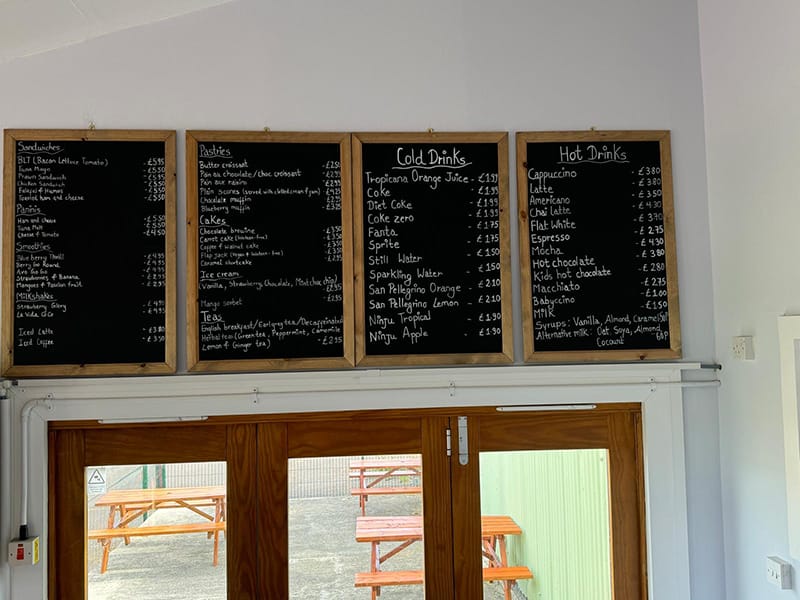 Sandwiches
BLT (Bacon Lettuce Tomato) - £5.95
Tuna Mayo - £5.50
Prawn Sandwich
Chicken Sandwich - £5.50
Falafel & Humus - £5.50
Toasted ham and cheese
Paninis
Ham and cheese - £5.50
Tuna Melt - £5.50
Cheese & Tomato - £4.50
Smoothies
Blue berry Thrill - £4.95
Berry Go Round - £4.95
Avo Go Go - £4.95
Strawberries & Banana - £4.95
Mangoes & Passion fruit - £4.95
Milkshakes
Strawberry Glory - £4.95
La Vida
Iced Latte - £3.80
Iced Coffee - £3.50
Pastries
Butter croissant - £2.50
Pain au chocolate/choc croissant
Pain aux raisins
Plain scones (served with clotted cream & jam)
Chocolate muffin
Blueberry muffin - £3.25
Cakes
Chocolate brownie - £3.50
Carrot cake
Coffee & walnut cake - £3.50
Flap Jack
Caramel shortcake
Ice cream
(Vanilla, Strawberry, Chocolate, Mint choc chip)
Mango sorbet
Teas
English breakfast/Earlgrey tea/Decaffeinated
Herbal tea (Green tea, Peppermint, Camomile
Lemon & Ginger tea) - £2.95
Cold Drinks
Tropicana Orange Juice - £1.99
Coke - £1.95
Diet Coke - £1.95
Coke zero - £1.95
Fanta - £1.75
Sprite - £1.75
Still Water - £1.50
Sparkling Water - £1.50
San Pellegrino Orange - £2.10
San Pellegrino Lemon - £2.10
Ninju Tropical - £1.90
Ninju Apple - £1.90
Hot Drinks
Cappuccino - £3.80
Latte - £3.80
Americano - £3.50
Chai latte - £4.30
Flat White - £3.70
Espresso - £2.75
Mocha - £4.30
Hot chocolate - £3.80
Kids hot chocolate - £2.80
Macchiato - £2.75
Babyccino - £1.00
Milk - £1.50
Syrups: Vanilla, Almond, Caramel
Alternative milk: Oat, Soya, Almond,
Coconut